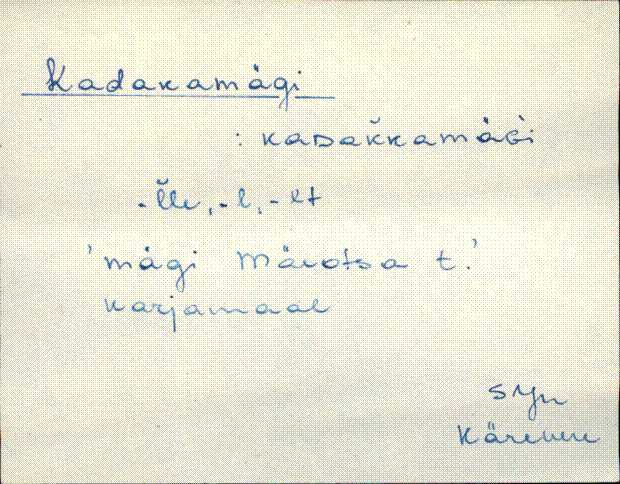 Kadakamägi
: kaDak̆kamäGi
-l̆le, -l, -lt
'mägi Märotsa t.'
karjamaal
SJn
Kärevere